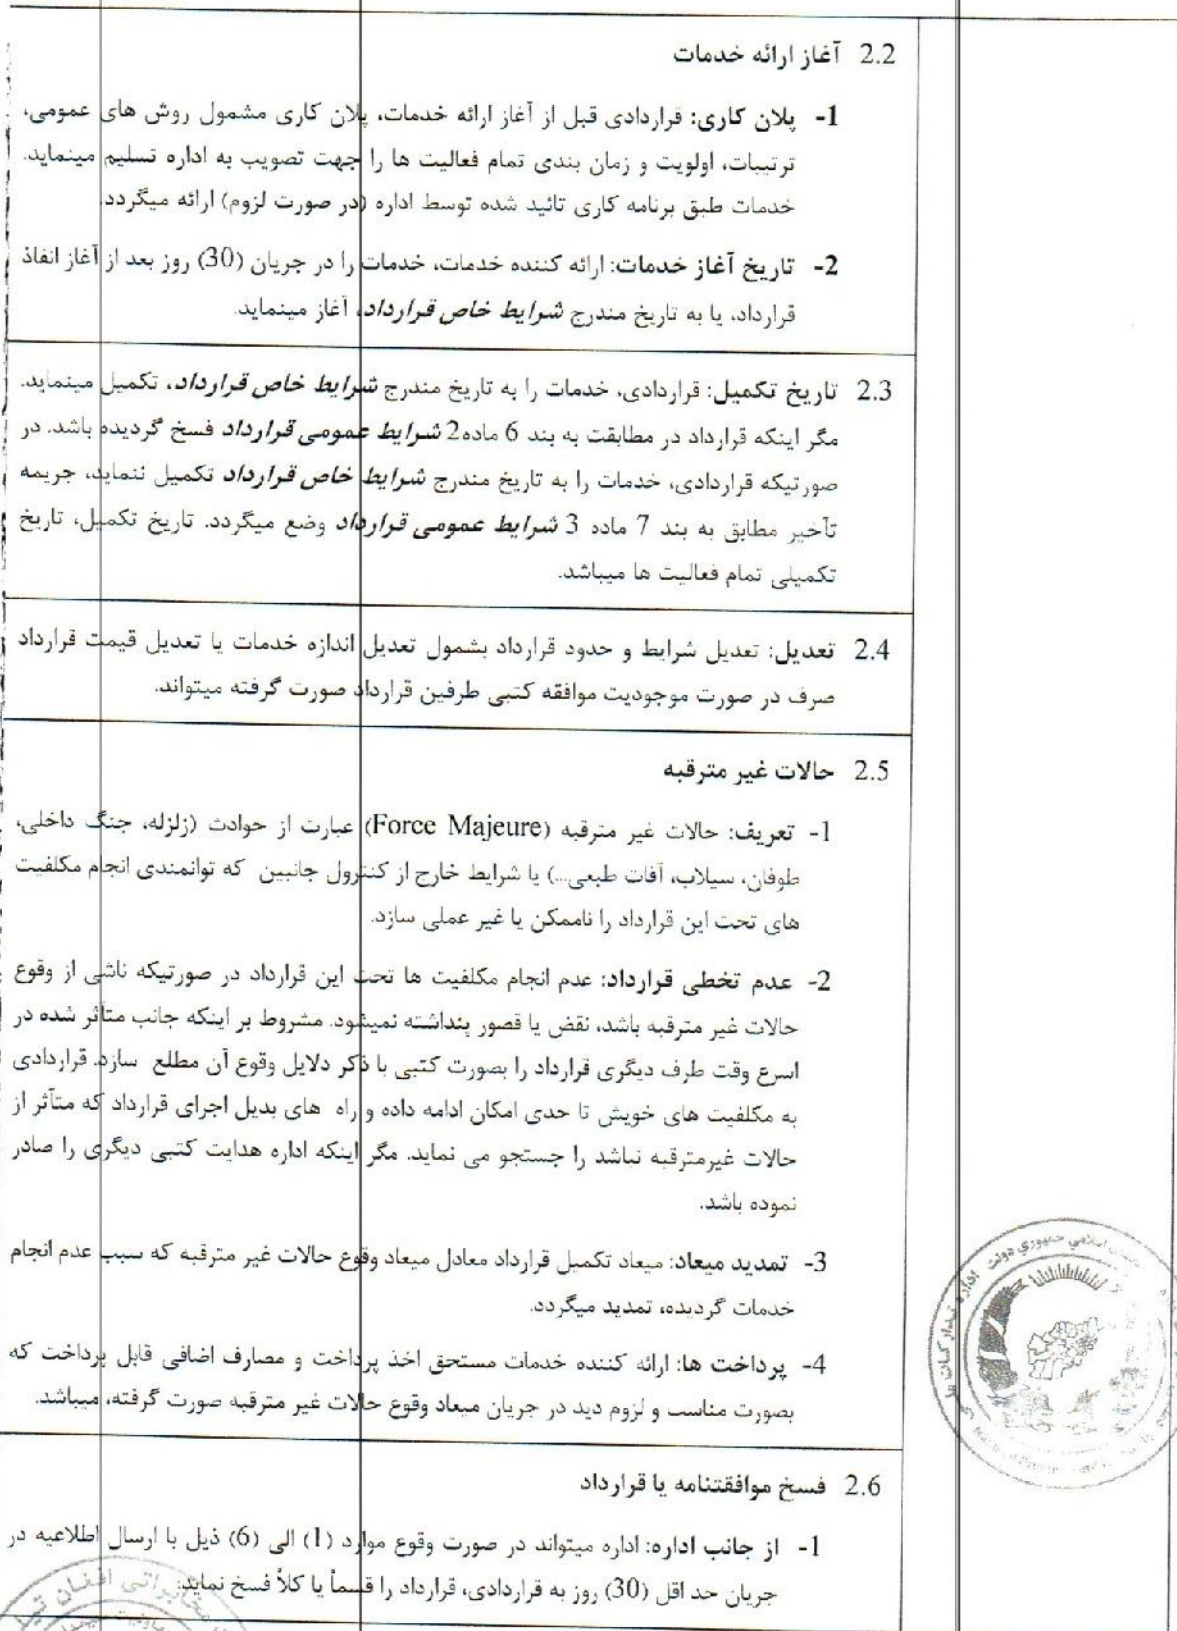 2.2 آغاز ارائه خدمات
1- پلان کاری: قراردادی قبل از آغاز ارائه خدمات، پلان کاری مشمول روش های عمومی،
ترتیبات، اولویت و زمان بندی تمام فعالیت ها را جهت تصویب به اداره تسلیم مینماید.
خدمات طبق برنامه کاری تائید شده توسط اداره (در صورت لزوم) ارائه میگردد.
2- تاریخ آغاز خدمات: ارائه کننده خدمات، خدمات را در جریان (30) روز بعد از آغاز انفاذ
قرارداد، یا به تاریخ مندرج شرایط خاص قرارداد، آغاز مینماید.
2.3 تاریخ تکمیل: قراردادی، خدمات را به تاریخ مندرج شرایط خاص قرارداد، تکمیل مینماید.
مگر اینکه قرارداد در مطابقت به بند 6 ماده2 شرایط عمومی قرارداد فسخ گردیده باشد. در
صورتیکه قراردادی، خدمات را به تاریخ مندرج شرایط خاص قرارداد تکمیل ننماید، جریمه
تآخیر مطابق به بند 7 ماده 3 شرایط عمومی قرارداد وضع میگردد. تاریخ تکمیل، تاریخ
تکمیلی تمام فعالیت ها میباشد.
2.4 تعدیل: تعدیل شرایط و حدود قرارداد بشمول تعدیل اندازه خدمات یا تعدیل قیمت قرارداد
صرف در صورت موجودیت موافقه کتبی طرفین قرارداد صورت گرفته میتواند.
2.5 حالات غیر مترقبه
1- تعریف: حالات غیر مترقبه (Force Majeure) عبارت از حوادث (زلزله، جنگ داخلی،
طوفان، سیلاب، آفات طبعی...) یا شرایط خارج از کنترول جانبین که توانمندی انجام مکلفیت
های تحت این قرارداد را ناممکن یا غیر عملی سازد.
2- عدم تخطی قرارداد: عدم انجام مکلفیت ها تحت این قرارداد در صورتیکه ناشی از وقوع
حالات غیر مترقبه باشد، نقض یا قصور پنداشته نمیشود. مشروط بر اینکه جانب متأثر شده در
اسرع وقت طرف دیگری قرارداد را بصورت کتبی با ذکر دلایل وقوع آن مطلع سازد. قراردادی
به مکلفیت های خویش تا حدی امکان ادامه داده و راه های بدیل اجرای قرارداد که متآثر از
حالات غیرمترقبه نباشد را جستجو می نماید. مگر اینکه اداره هدایت کتبی دیگری را صادر
نموده باشد.
3- تمدید میعاد: میعاد تکمیل قرارداد معادل میعاد وقوع حالات غیر مترقبه که سبب عدم انجام
خدمات گردیده، تمدید میگردد.
4- پرداخت ها: ارائه کننده خدمات مستحق اخذ پرداخت و مصارف اضافی قابل پرداخت که
بصورت مناسب و لزوم دید در جریان میعاد وقوع حالات غیر مترقبه صورت گرفته، میباشد.
2.6 فسخ موافقتنامه یا قرارداد
1- از جانب اداره: اداره میتواند در صورت وقوع موارد (1) الی (6) ذیل با ارسال اطلاعیه در
جریان حد اقل (30) روز به قراردادی، قرارداد را قسماً یا کلاً فسخ نماید: